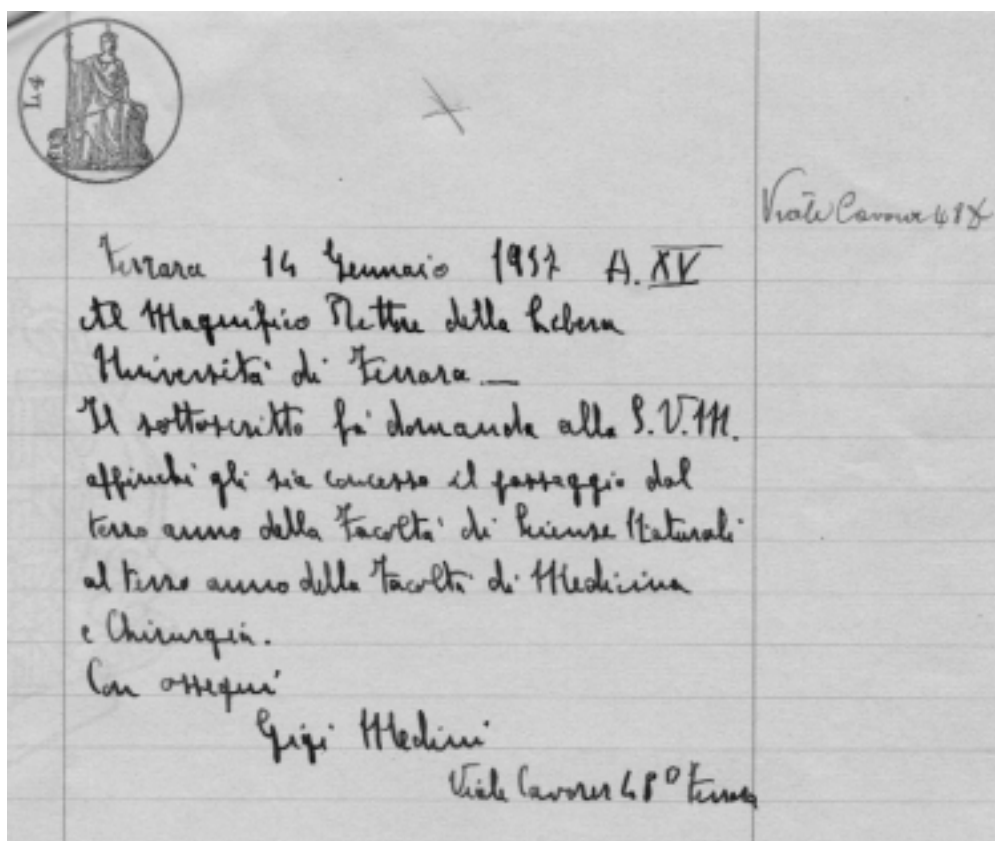 L 4
Viale Cavour 48
Ferrara 14 Gennaio 1937 A. XV
Al Magnifico Rettore della Libera
Università di Ferrara —
Il sottoscritto fà domanda alla S.V.M.
affinchè gli sia concesso il passaggio dal
terzo anno della Facoltà di Scienze Naturali
al terzo anno della Facoltà di Medicina
e Chirurgia.
Con ossequi
Gigi Medini
Viale Cavour 48 Ferrara